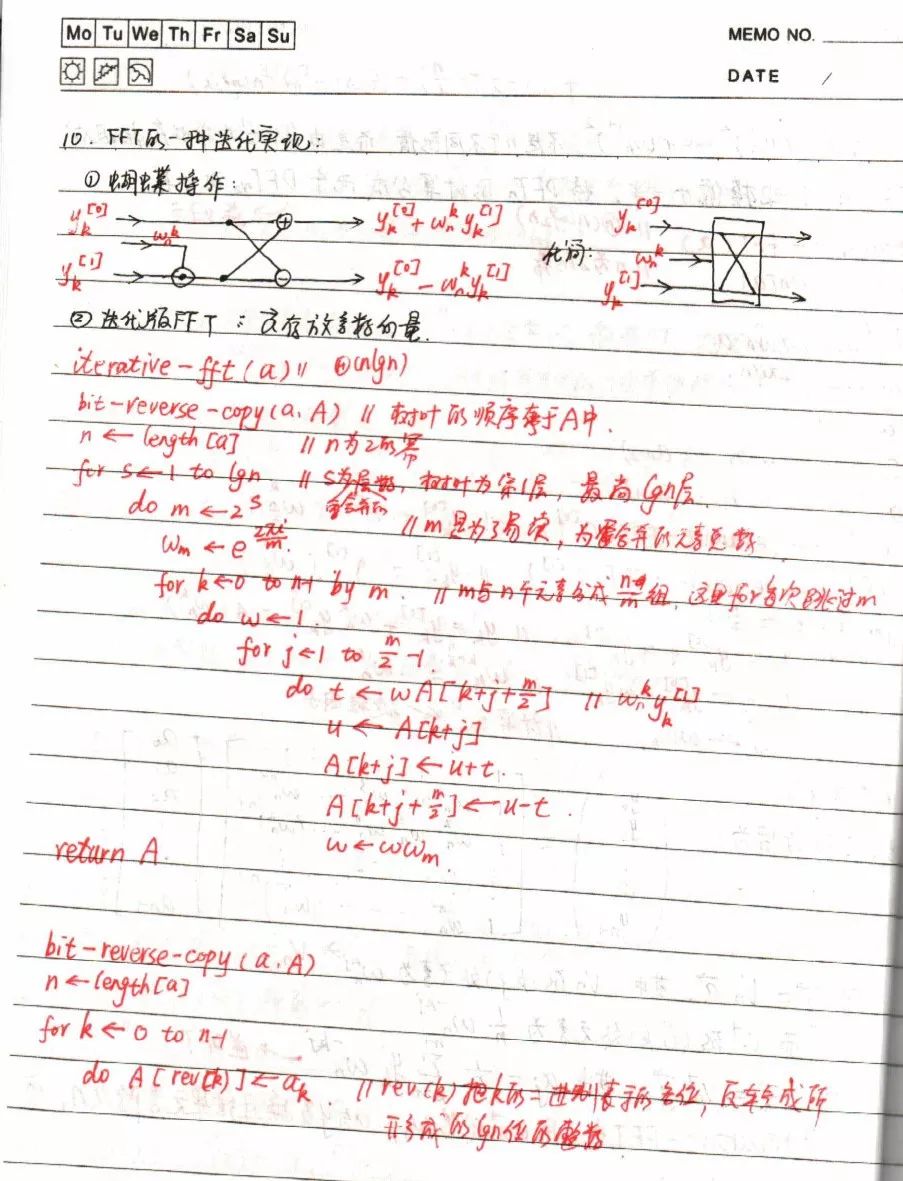 Mo Tu We Th Fr Sa Su
MEMO NO.
DATE /
10. FFT的一种迭代实现:
① 蝴蝶操作:
y_k^[0] y_k^[0] + ω_n^k y_k^[1] y_k^[0]
ω_n^k 化简: ω_n^k
y_k^[1] y_k^[0] - ω_n^k y_k^[1] y_k^[1]
② 迭代版FFT : 只存放系数向量.
iterative-fft(a) // Θ(nlgn)
bit-reverse-copy(a, A) // 树叶的顺序存于A中.
n ← length[a] // n为2的幂
for s ← 1 to lgn // s为层数, 树叶为第1层, 最高lgn层.
do m ← 2^s // m是为了易读, 为需合并的元素总数
ω_m ← e^(2πi/m).
for k ← 0 to n-1 by m. // 个元素分成 组, 这里for每次跳过m
do ω ← 1.
for j ← 1 to m/2 -1.
do t ← ωA[k+j+m/2] // ω_n^k y_k^[1]
u ← A[k+j]
A[k+j] ← u+t.
A[k+j+m/2] ← u-t.
ω ← ωω_m.
return A.
bit-reverse-copy(a, A)
n ← length[a]
for k ← 0 to n-1
do A[rev(k)] ← a_k. // rev(k)把k的二进制表示的各位, 反转成所
形成的lgn位的整数